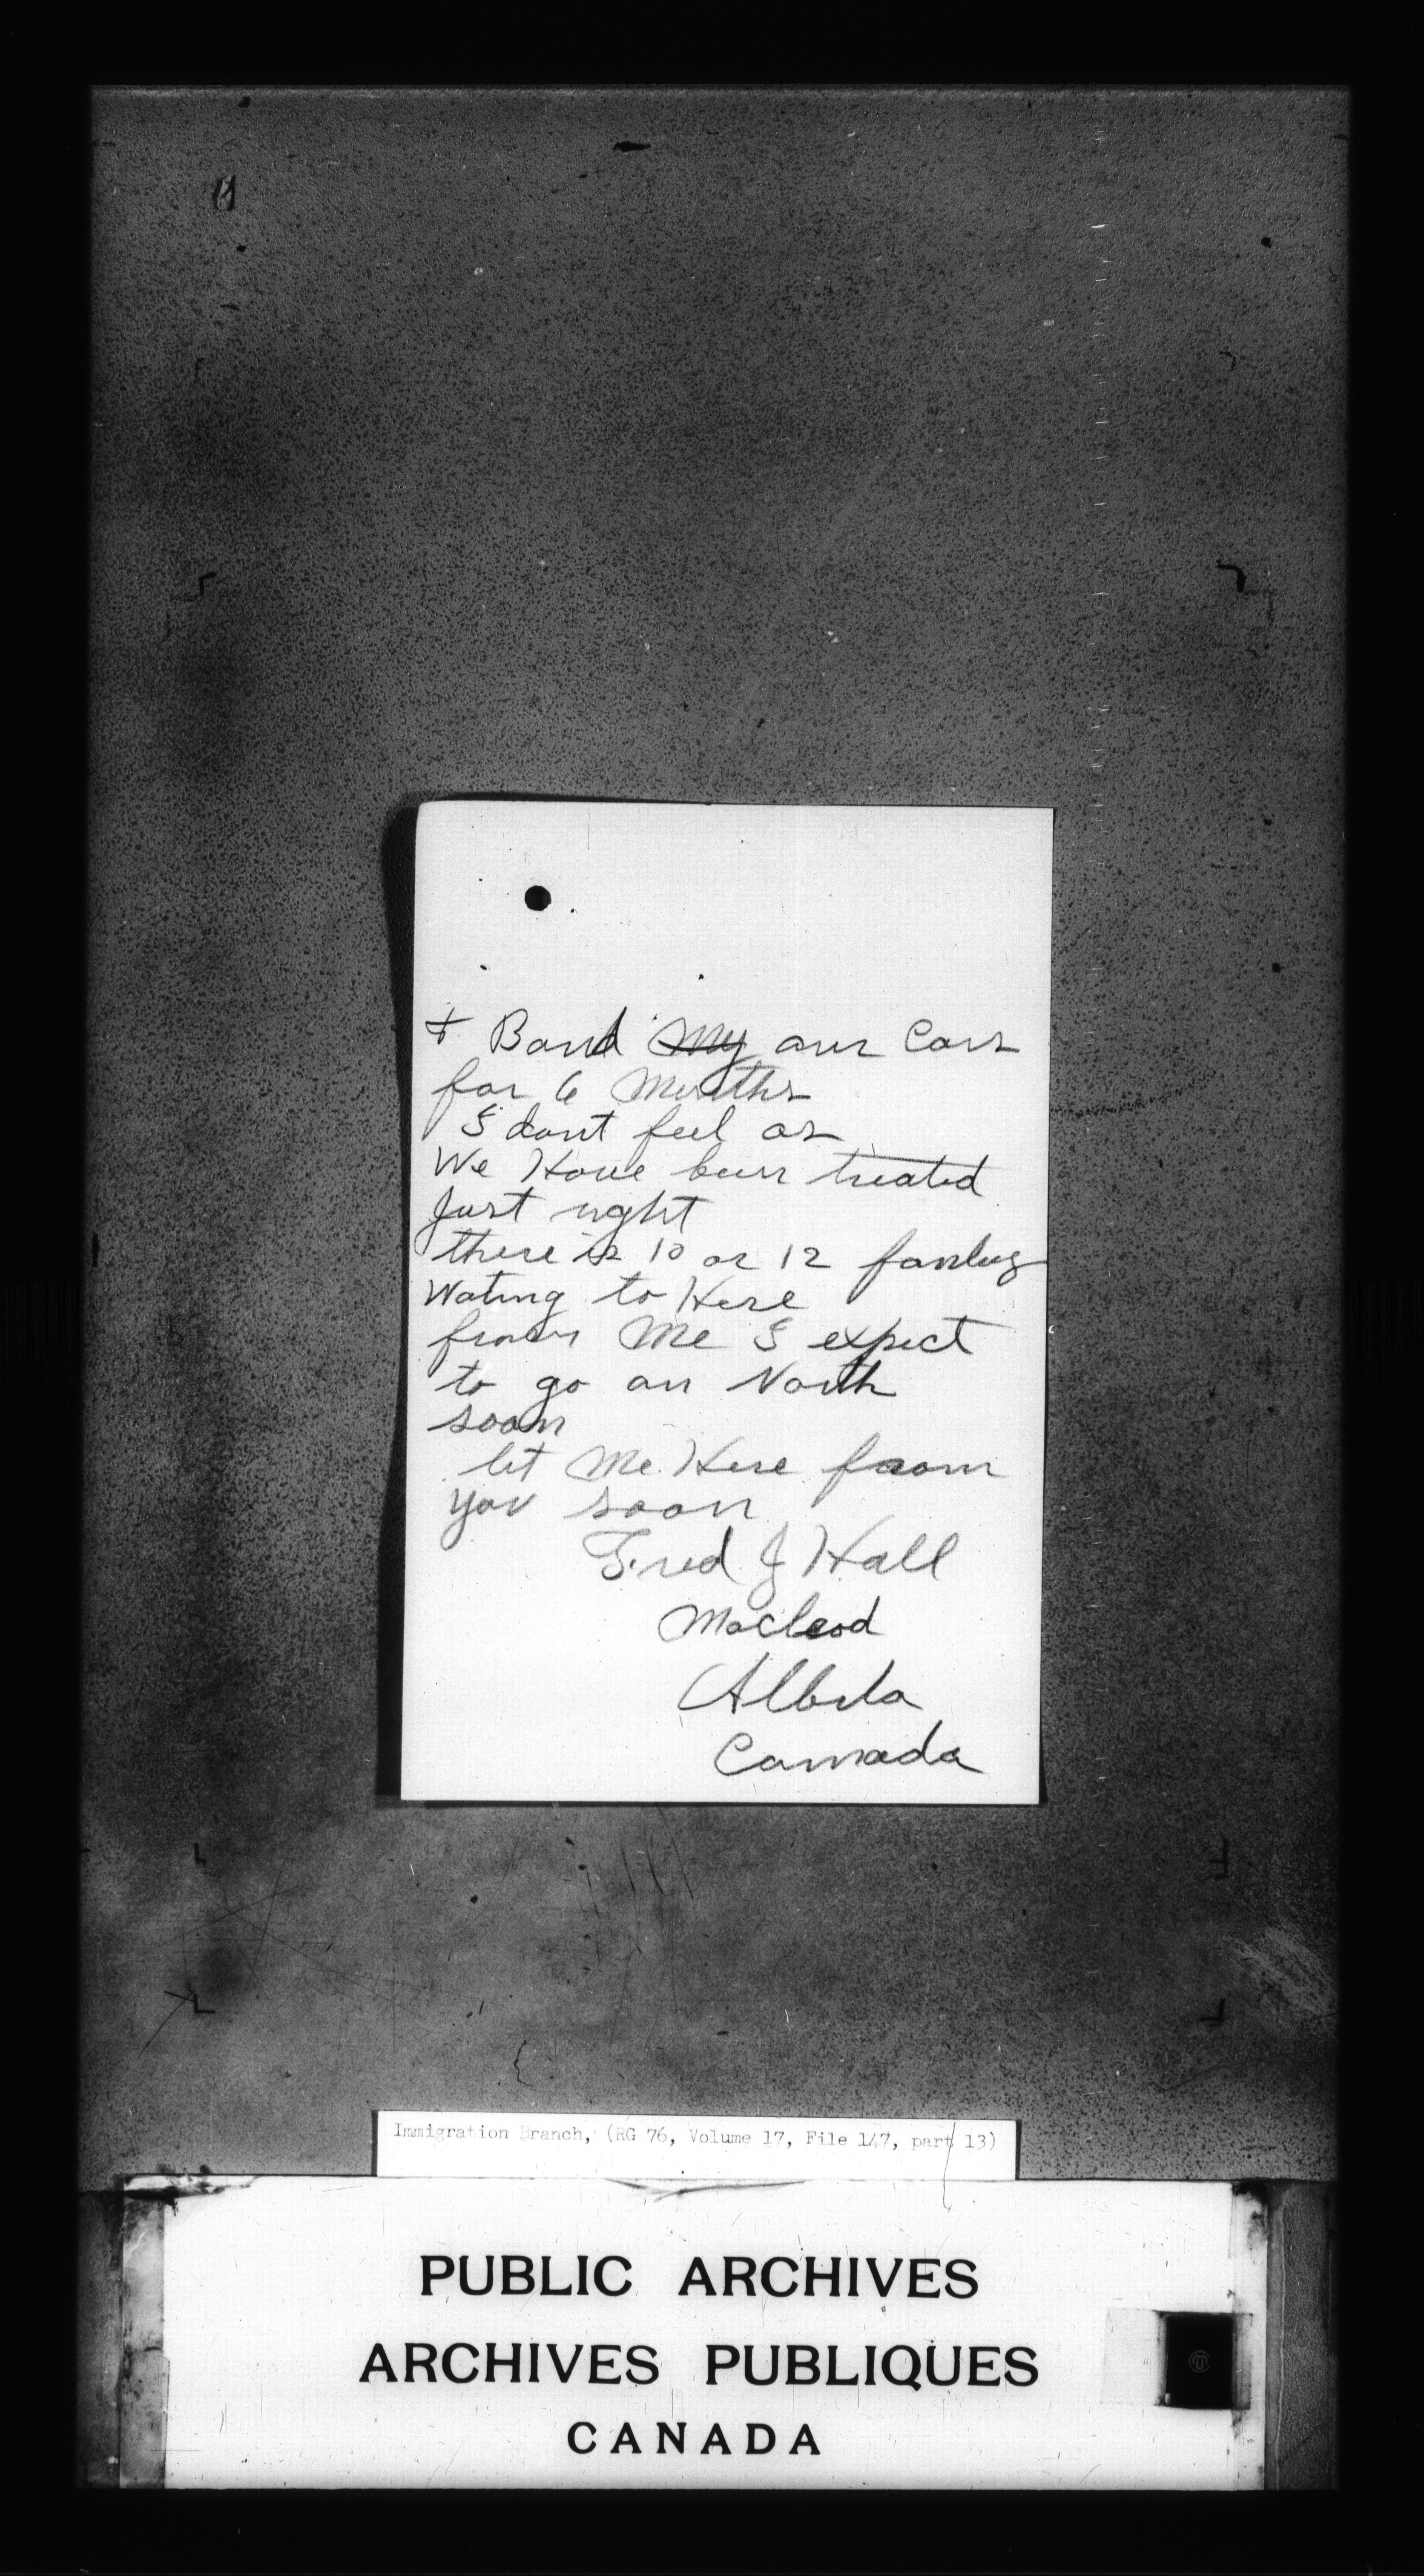 + Bond My our Cars
for 6 Months
I dont feel as
We Have been treated
Just right
there is 10 or 12 famleys
Wating to Here
from Me I expect
to go on North
soon
let Me Here from
you soon
Fred J Hall
Macleod
Alberta
Canada
Immigration Branch, (RG 76, Volume 17, File 147, part 13)
PUBLIC ARCHIVES
ARCHIVES PUBLIQUES
CANADA